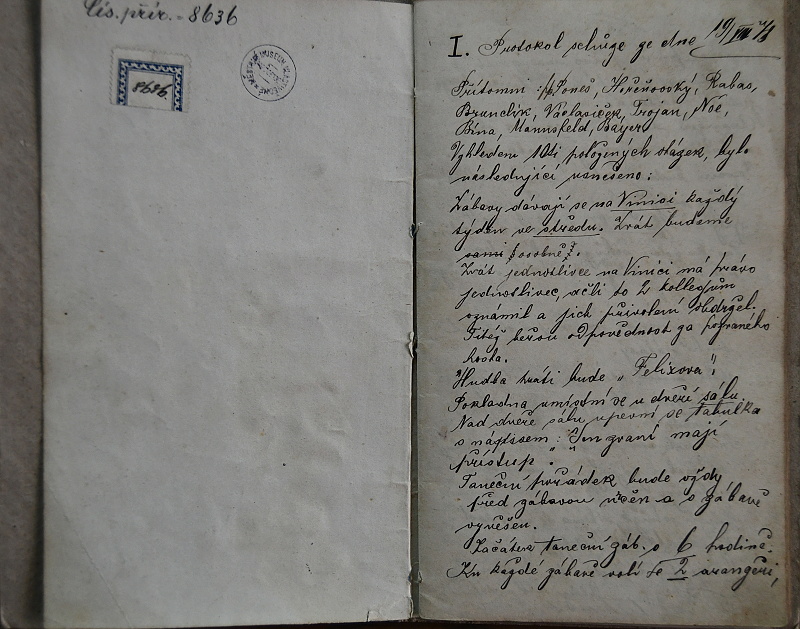 Čís. přír. = 8636
8636.
I. Protokol schůze ze dne 19/VIII
Přítomni: Poneš, Hořeňovský, Rabas,
Brunclík, Václavíček, Trojan, Noé,
Bína, Mannsfeld, Bayer
Vzhledem 10ti položených otázek, bylo
následující usnešeno:
Zábavy dávají se na Vinici každý
týden ve středu. Zvát budeme
sami (osobně).
Zvát jednotlivce na Vinici má právo
jednotlivec, ačli to 2 kollegům
oznámil a jich přivolení obdržel.
Titéž berou odpovědnost za pozvaného
hosta.
Hudba hráti bude „Felixova".
Pokladna umístní se u dveří sálu.
Nad dveře sálu upevní se tabulka
s nápisem: „Jen zvaní mají
přístup".
Taneční pořádek bude vždy
před zábavou určen a o zábavě
vyvěšen.
Začátek taneční záb. o 6 hodině.
Ku každé zábavě volí se 2 aranžéři,